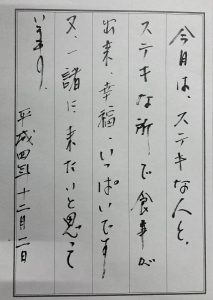 今日は、ステキな人と、
ステキな所で食事が
出来、幸福、いっぱいです!
又、一諸に来たいと思って
います。
平成四年十二月二日